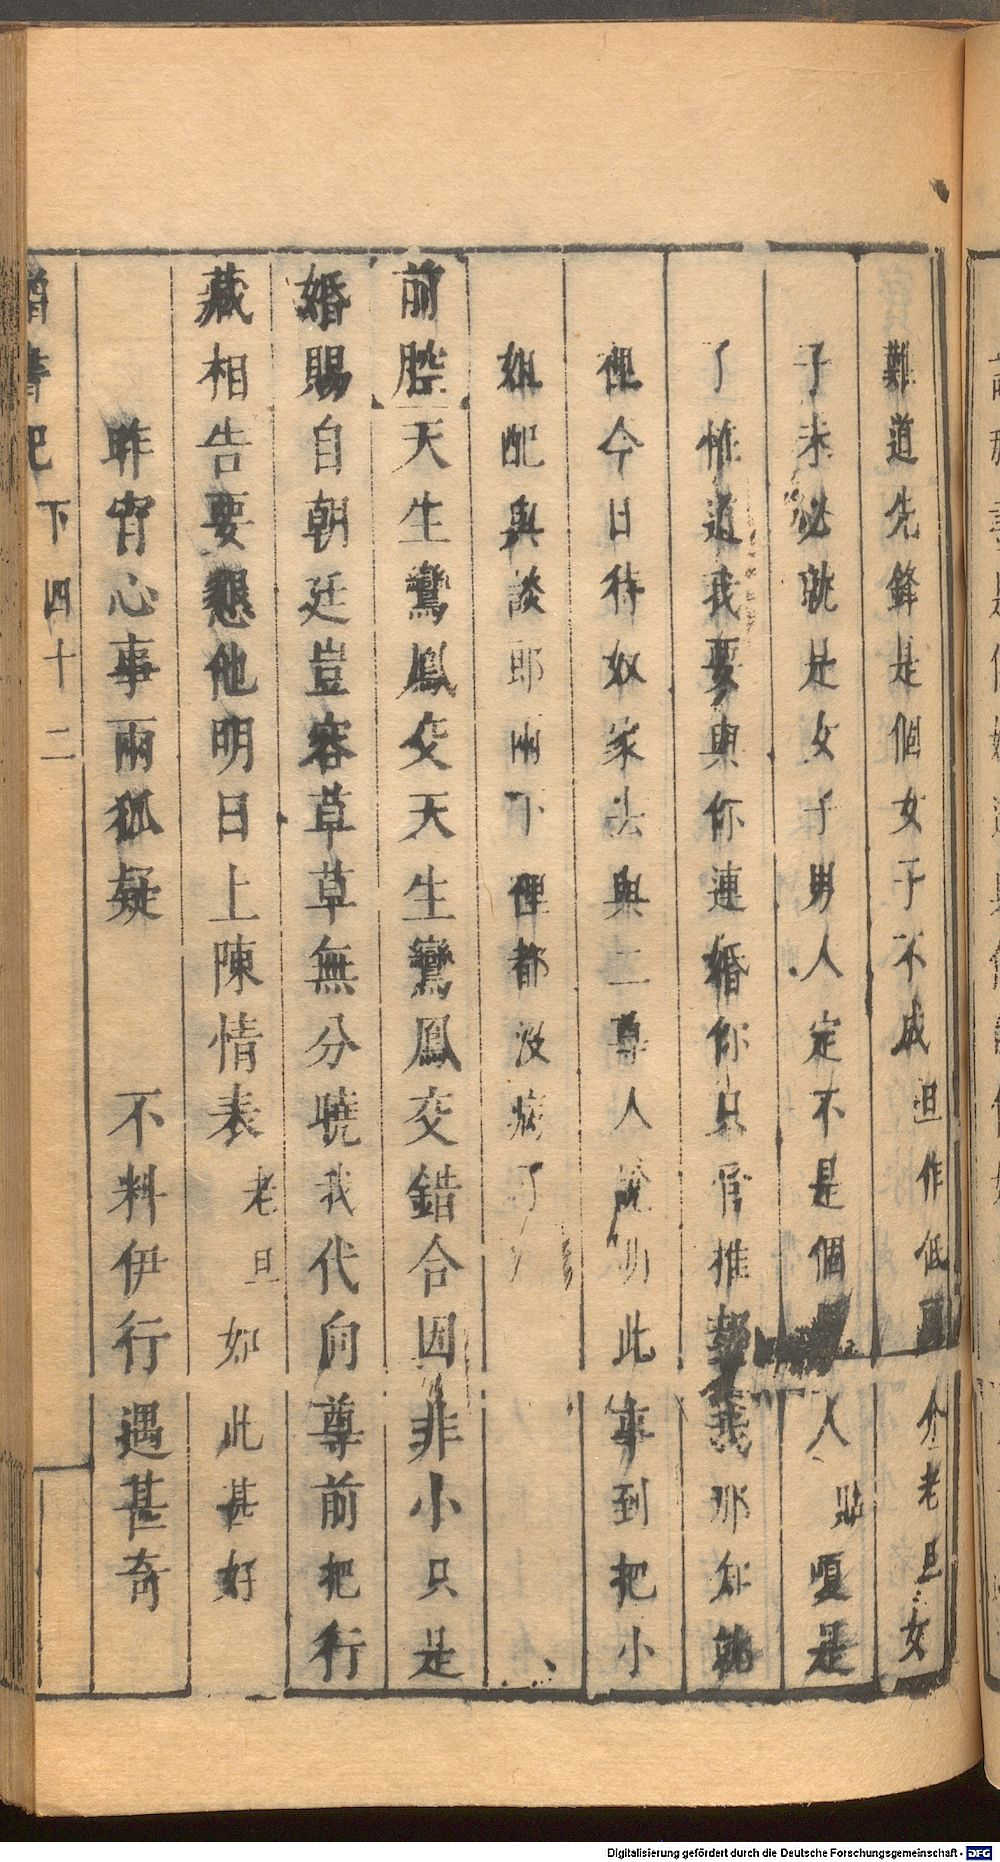 難道先鋒是個女子不成旦作低頭介老旦女
子未必就是女子男人定不是個人貼嗄是
了怪道我要與你連婚你只管推我那知就
裡今日待奴家去與二尊人說明此事到把小
姐配與談郎兩下裡都沒病了
前腔天生鸞鳳交天生鸞鳳交錯合因非小只是
婚賜自朝廷豈容草草無分曉我代向尊前把行
藏相告要懇他明日上陳情表老旦如此甚好
昨宵心事兩狐疑 不料伊行遇甚奇
書記 下 四十二
Digitalisierung gefördert durch die Deutsche Forschungsgemeinschaft - DFG